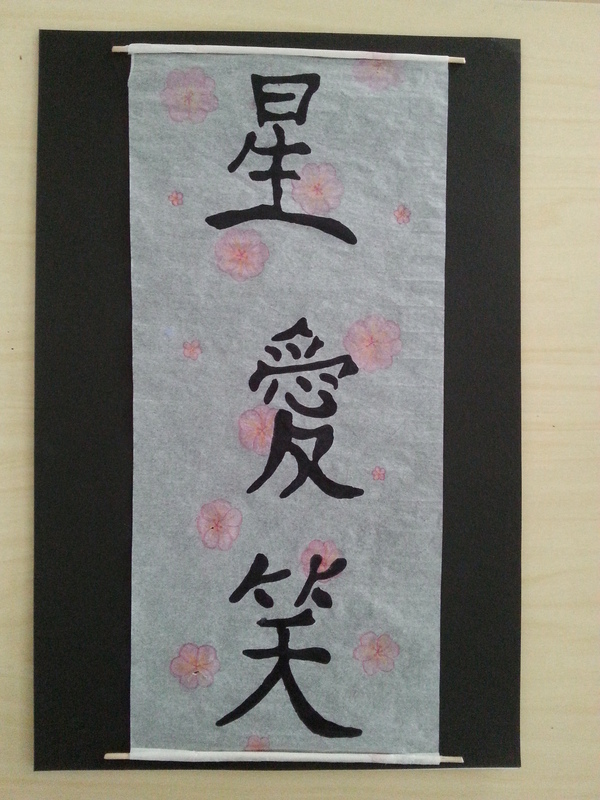 星愛笑